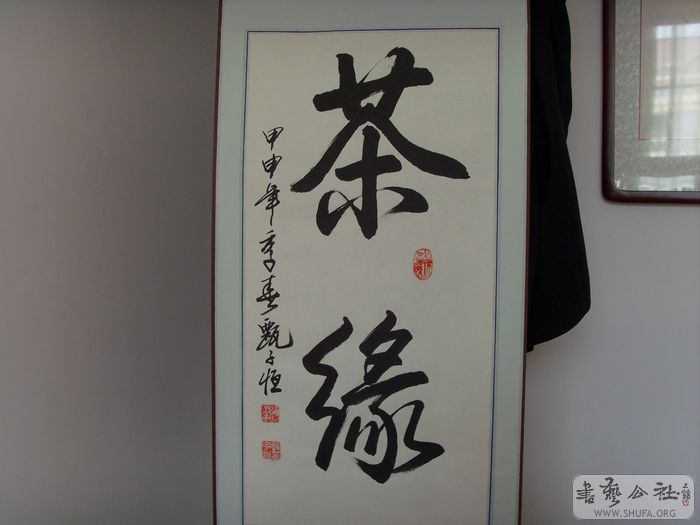 茶緣
甲申年季春甄子恒
書藝公社
WWW.SHUFA.ORG